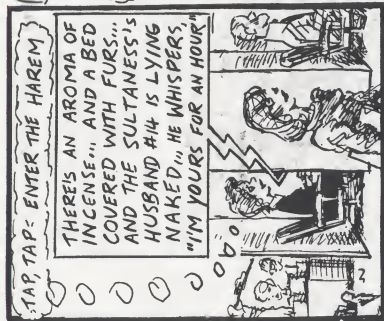 TAP, TAP: ENTER THE HAREM
THERE'S AN AROMA OF
INCENSE... AND A BED
COVERED WITH FURS...
AND THE SULTANESS'S
HUSBAND #14 IS LYING
NAKED... HE WHISPERS,
"I'M YOURS FOR AN HOUR"
2